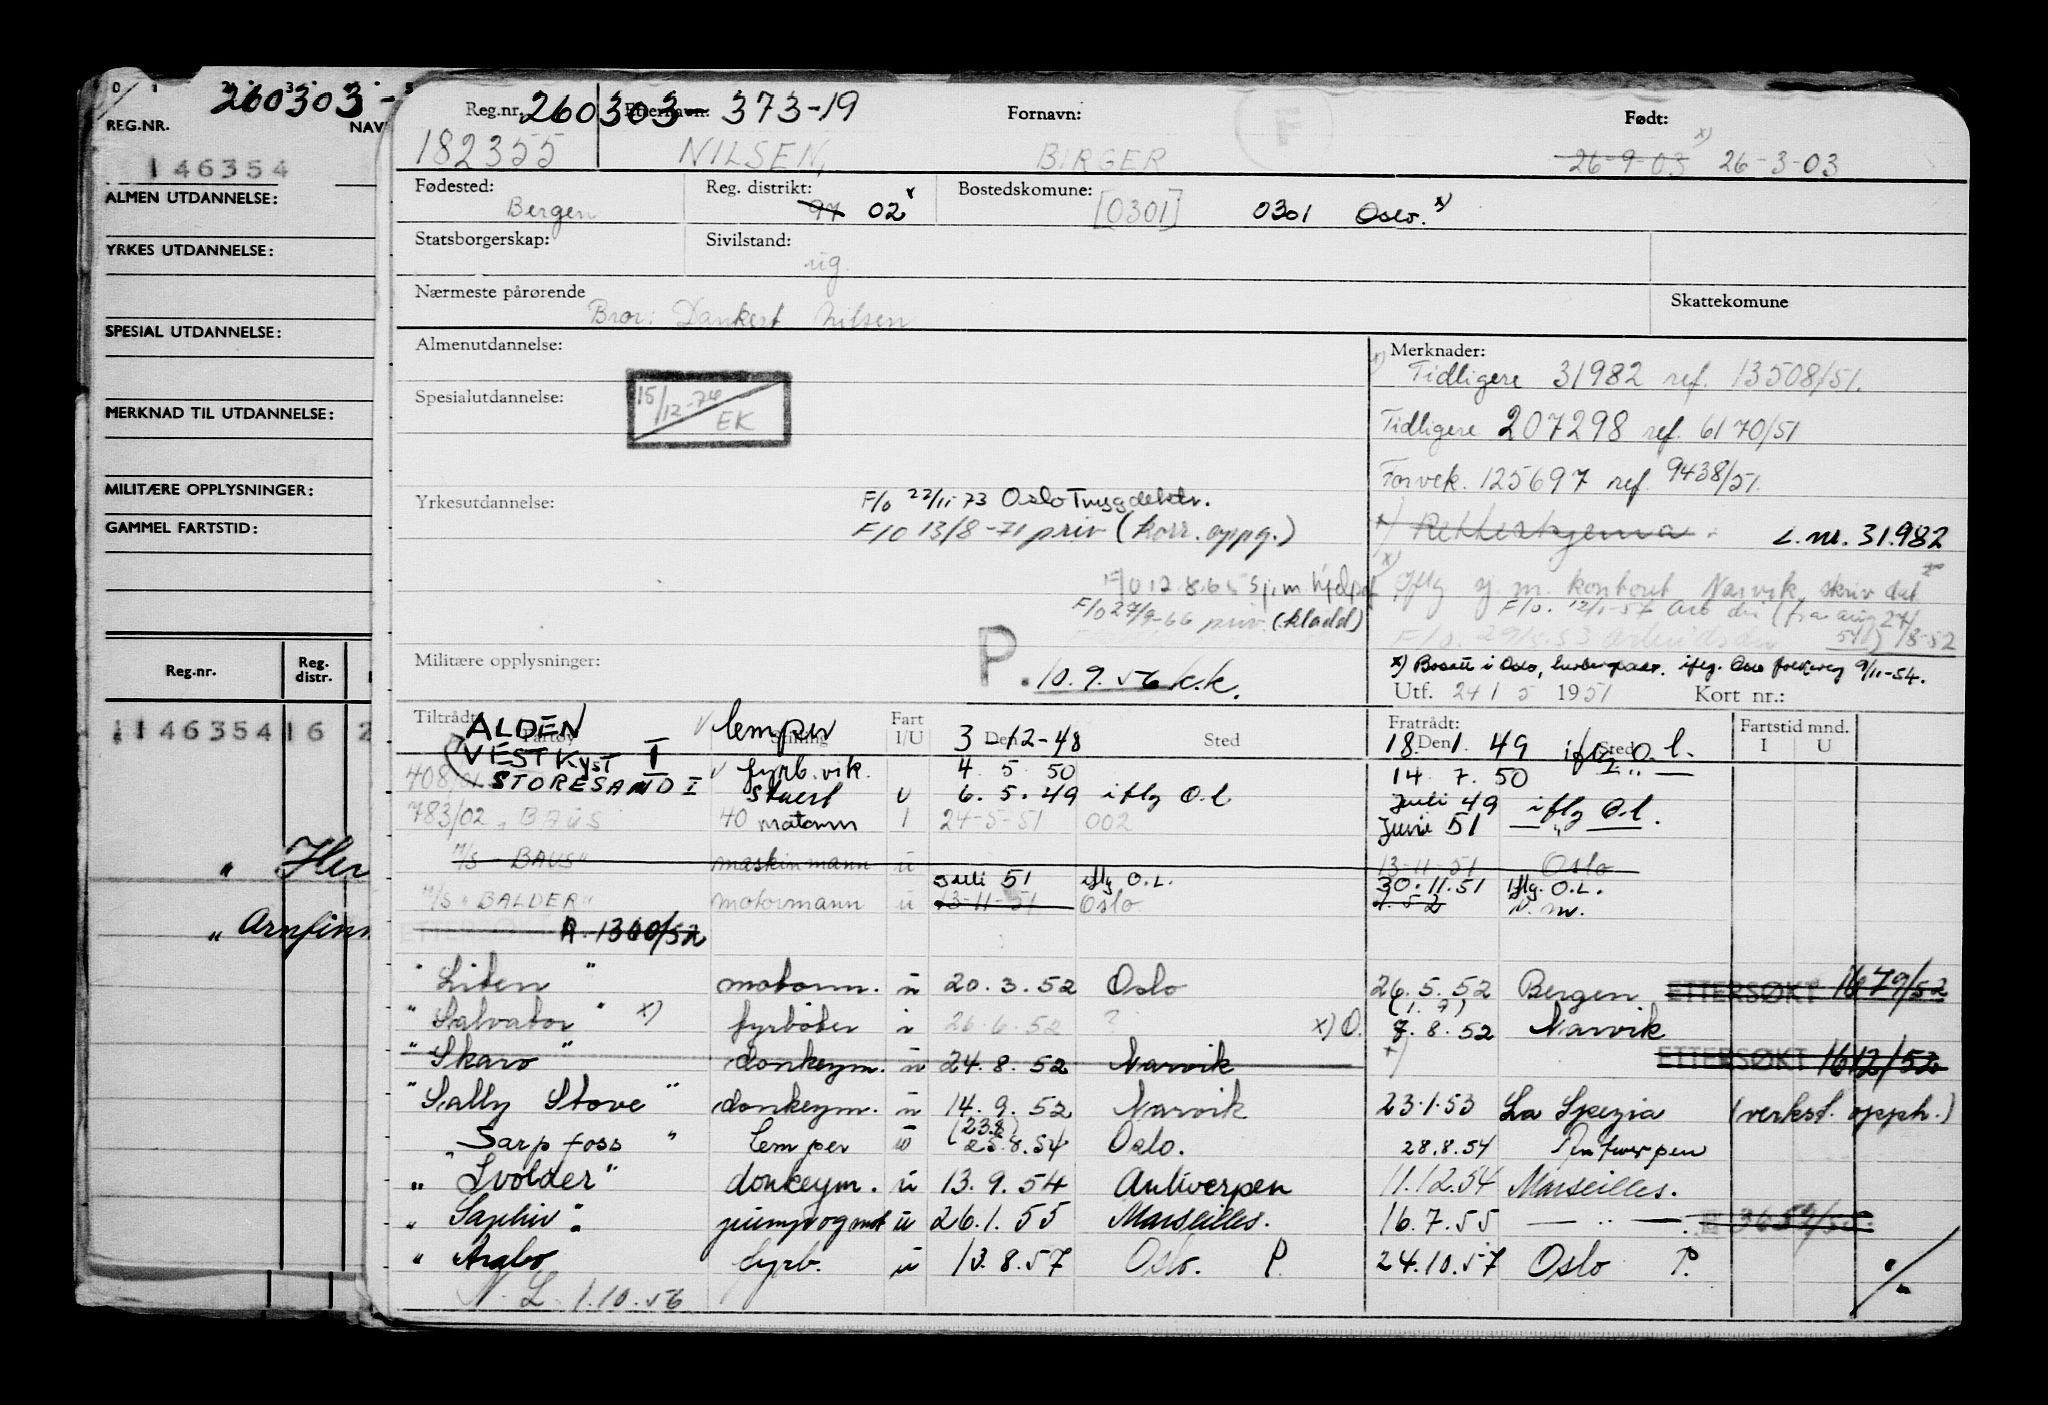 260303-
REG.NR.
NAV
146354
ALMEN UTDANNELSE:
YRKES UTDANNELSE:
SPESIAL UTDANNELSE:
MERKNAD TIL UTDANNELSE:
MILITÆRE OPPLYSNINGER:
GAMMEL FARTSTID:
Reg.nr. Reg. distr.
146354 16 2
" Her
" Arnfinn
Reg.nr. 260303 Etternavn: 373-19 Fornavn: F Født:
182355 NILSEN, BIRGER 26-9-03 x) 26-3-03
Fødested: Reg. distrikt: Bostedskomune:
Bergen 97 02 [0301] 0301 Oslo. x)
Statsborgerskap: Sivilstand:
ug.
Nærmeste pårørende Skattekomune
Bror: Dankert Nilsen
Almenutdannelse: Merknader:
Tidligere 31982 ref. 13508/51.
Spesialutdannelse: 15/12-74 EK
Tidligere 207298 ref. 6170/51
Forvek. 125697 ref. 9438/51.
Yrkesutdannelse: F/o 22/11-73 Oslo Trygdektr.
F/O 13/8-71 priv (korr. oppg.)
x) Rekkeskjema. L.nr. 31.982
F/O 12.8.65 Sj.m hjelpef
x) Iflg sj. m. kontoret Narvik skriv dat
F/o 27/9-66 priv. (kladd)
F/o. 12/1-57 (fra aug 54) 27/8-52
F/o. 29/5.53
Militære opplysninger: P. 10.9.56 k.k.
x) Bosatt i Oslo, iflg. Oslo folkereg 9/11-54.
Utf. 24 / 5 1951 Kort nr.:
Tiltrådt: Fartøy Stilling Fart I/U Den Sted Fratrådt: Den Sted Fartstid mnd. I U
ALDEN lemper 3-12-48 18.1.49 iflg O.l.
VESTKYST I fyrb.vik. 4.5.50 14.7.50 — " —
408/01 STORESAND I stuert u 6.5.49 iflg O.l Juli 49 iflg O.l.
783/02 "BAUS 40 matorm 1 24-5-51 002 Juni 51 — " —
M/S "BAUS" maskinmann u 13-11-51 Oslo
Juli 51 iflg O.L. 30.11.51 iflg. O.L.
M/S "BALDER" motormann u 13-11-51 Oslo 1.52 N.m.
ETTERSØKT R.1360/52
" Liten " motorm. u 20.3.52 Oslo 26.5.52 Bergen ETTERSØKT 1679/52
(1.9)
" Salvator " x) fyrbøter u 26.6.52 ? x) O. 7.8.52 Narvik
" Skaro " donkeym. u 24.8.52 Narvik x) ETTERSØKT 1612/52
" Sally Stove " donkeym. u 14.9.52 Narvik 23.1.53 La Spezia (verkst. opph.)
(23.8)
" Sarpfoss " Lemper u 25.8.54 Oslo. 28.8.54 Antwerpen
" Svolder " donkeym. u 13.9.54 Antwerpen 11.12.54 Marseilles.
" Saphir " u 26.1.55 Marseilles. 16.7.55 — " —
" Arabo fyrb. u 13.8.57 Oslo. P. 24.10.57 Oslo P.
N. L. 1.10.56